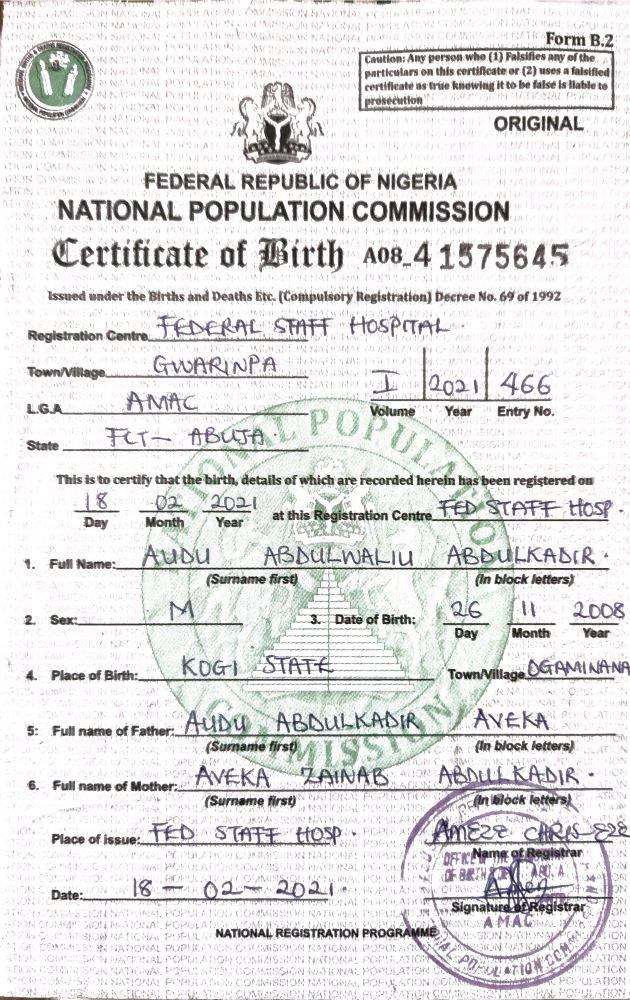 Form B.2
Caution: Any person who (1) Falsifies any of the
particulars on this certificate or (2) uses a falsified
certificate as true knowing it to be false is liable to
prosecution
ORIGINAL
FEDERAL REPUBLIC OF NIGERIA
NATIONAL POPULATION COMMISSION
Certificate of Birth A08_4 1575645
Issued under the Births and Deaths Etc. (Compulsory Registration) Decree No. 69 of 1992
Registration Centre FEDERAL STAFF HOSPITAL.
Town/Village GWARINPA
I 2021 466
L.G.A AMAC
Volume Year Entry No.
State FCT - ABUJA.
This is to certify that the birth, details of which are recorded herein has been registered on
18 02 2021 at this Registration Centre FED STAFF HOSP.
Day Month Year
1. Full Name: AUDU ABDULWALIU ABDULKADIR.
(Surname first) (In block letters)
2. Sex: M 3. Date of Birth: 26 11 2008
Day Month Year
4. Place of Birth: KOGI STATE Town/Village OGAMINANA
5: Full name of Father: AUDU ABDULKADIR AVEKA
(Surname first) (In block letters)
6. Full name of Mother: AVEKA ZAINAB ABDULKADIR.
(Surname first) (In block letters)
Place of issue: FED STAFF HOSP. AMEZE CHRIS-EZE
Name of Registrar
Date: 18 - 02 - 2021.
Signature of Registrar
AMAC
NATIONAL REGISTRATION PROGRAMME
NATIONAL POPULATION COMMISSION